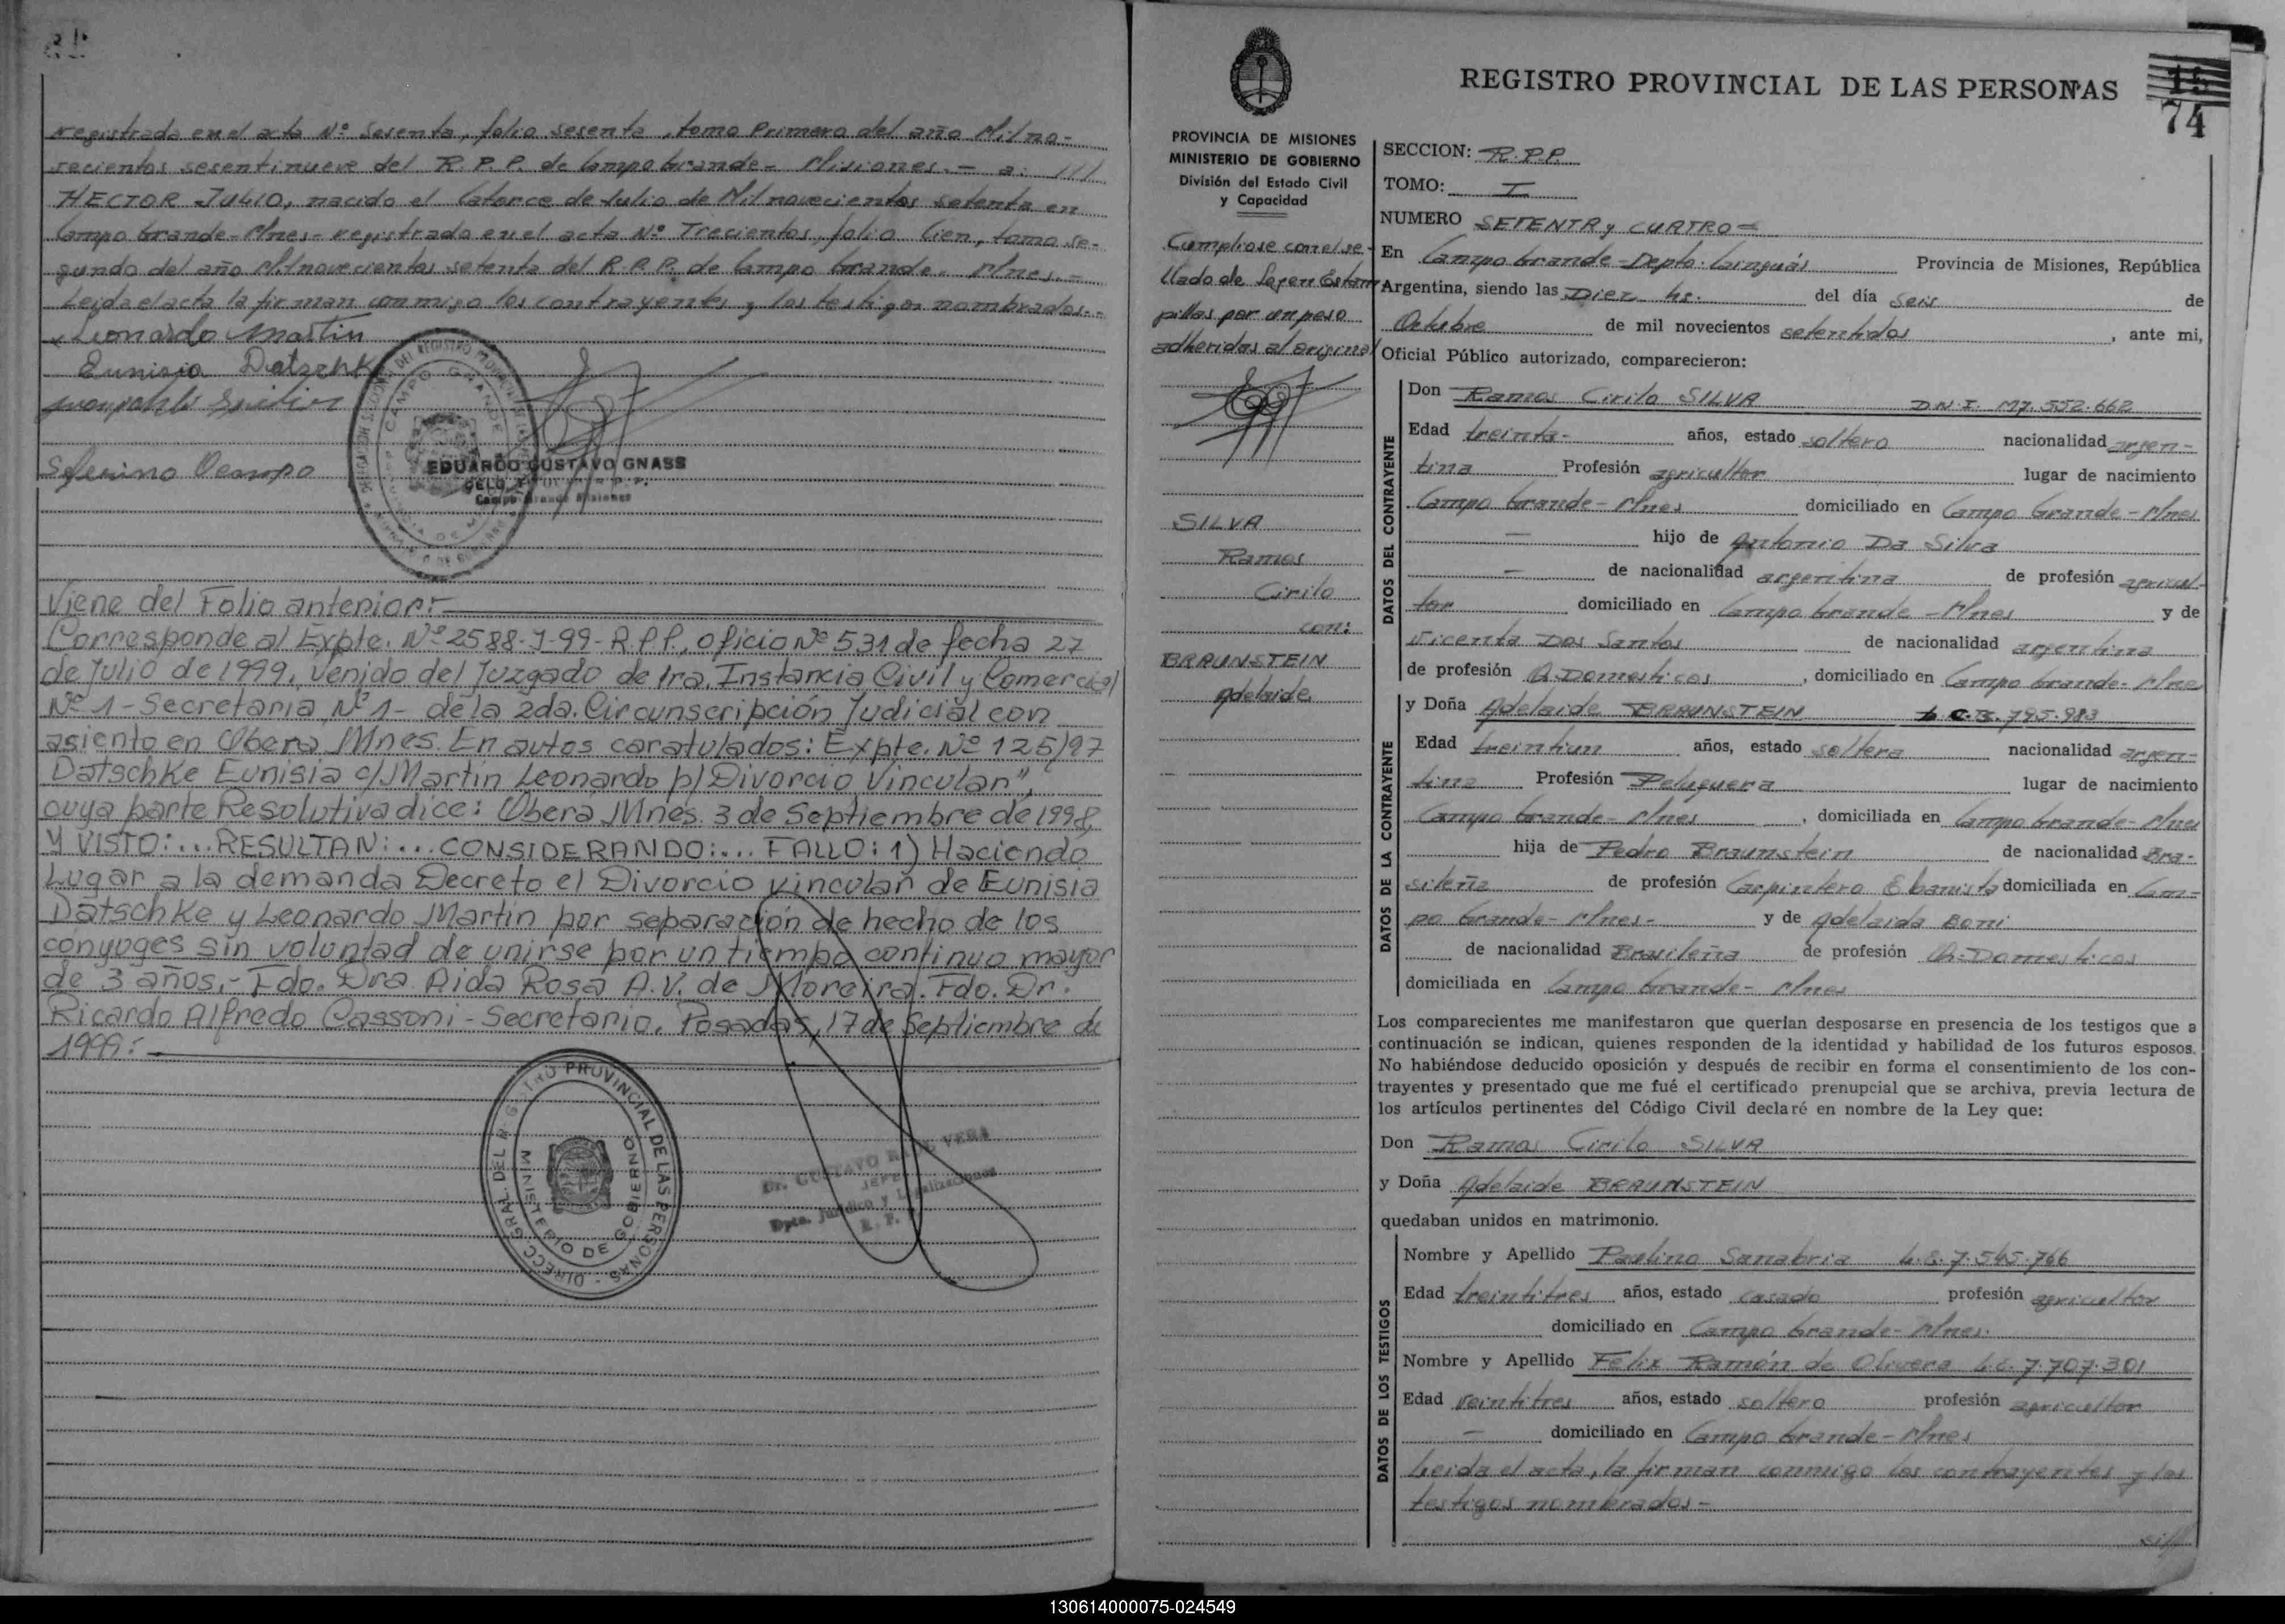 registrado en el acta Nº Sesenta, folio sesenta, tomo Primero del año Mil no-
vecientos sesentinueve del R.P.P. de Campo Grande - Misiones. - a: ///
HECTOR JULIO, nacido el Catorce de Julio de Mil novecientos setenta en
Campo Grande - Mnes - registrado en el acta Nº Trecientos, folio Cien, tomo Se-
gundo del año Mil novecientos setenta del R.P.P. de Campo Grande. Mnes. -
Leida el acta la firman conmigo los contrayentes y los testigos nombrados. -
Leonardo Martin
Eunisia Datschke
Seferino Ocampo
CAMPO GRANDE
EDUARDO GUSTAVO GNASS
Campo Grande Misiones
Viene del Folio anterior:-
Corresponde al Expte. Nº 2588-J-99- R.P.P, oficio Nº 531 de fecha 27
de Julio de 1999, venido del Juzgado de 1ra. Instancia Civil y Comercial
Nº 1 - Secretaria Nº 1 - de la 2da. Circunscripción Judicial con
asiento en Obera Mnes. En autos caratulados: Expte. Nº 125/97
Datschke Eunisia c/Martin Leonardo p/Divorcio Vincular",
cuya parte Resolutiva dice: Obera Mnes. 3 de Septiembre de 1998,
Y VISTO:... RESULTAN:... CONSIDERANDO:... FALLO: 1) Haciendo
Lugar a la demanda Decreto el Divorcio vincular de Eunisia
Datschke y Leonardo Martin por separación de hecho de los
conyuges sin voluntad de unirse por un tiempo continuo mayor
de 3 años.- Fdo. Dra. Aida Rosa A.V. de Moreira. Fdo. Dr.
Ricardo Alfredo Cassoni - Secretario. Posadas, 17 de Septiembre de
1999:-
DIRECC GRAL. DEL REGISTRO PROVINCIAL DE LAS PERSONAS
MINISTERIO DE GOBIERNO
Dr. GUSTAVO VERA
JEFE
Dpto. Jurídico y Legalizaciones
R. P.
REGISTRO PROVINCIAL DE LAS PERSONAS
15
74
PROVINCIA DE MISIONES
MINISTERIO DE GOBIERNO
División del Estado Civil
y Capacidad
Cumpliose con el se-
llado de Ley en Estam
pillas por un peso
adheridas al original
SILVA
Ramos
Cirilo
con:
BRAUNSTEIN
Adelaide
SECCION: R.P.P.
TOMO: I
NUMERO SETENTA y CUATRO =
En Campo Grande - Depto. Cainguás Provincia de Misiones, República
Argentina, siendo las Diez hs. del día Seis de
Octubre de mil novecientos setentidos, ante mi,
Oficial Público autorizado, comparecieron:
DATOS DEL CONTRAYENTE
Don Ramos Cirilo SILVA D.N.I. M7.552.662
Edad treinta- años, estado soltero nacionalidad argen-
tina Profesión agricultor lugar de nacimiento
Campo Grande - Mnes domiciliado en Campo Grande - Mnes
- hijo de Antonio Da Silva
- de nacionalidad argentina de profesión agricul-
tor domiciliado en Campo Grande - Mnes y de
Vicenta Dos Santos de nacionalidad argentina
de profesión Q. Domesticos, domiciliado en Campo Grande - Mnes
DATOS DE LA CONTRAYENTE
y Doña Adelaide BRAUNSTEIN L.C. 3.795.983
Edad treintiun años, estado soltera nacionalidad argen-
tina Profesión Peluquera lugar de nacimiento
Campo Grande - Mnes, domiciliada en Campo Grande - Mnes
hija de Pedro Braunstein de nacionalidad Bra-
sileña de profesión Carpintero Ebanista domiciliada en Cam-
po Grande - Mnes - y de Adelaida Boni
de nacionalidad Brasileña de profesión Q. Domesticos
domiciliada en Campo Grande - Mnes
Los comparecientes me manifestaron que querían desposarse en presencia de los testigos que a
continuación se indican, quienes responden de la identidad y habilidad de los futuros esposos.
No habiéndose deducido oposición y después de recibir en forma el consentimiento de los con-
trayentes y presentado que me fué el certificado prenupcial que se archiva, previa lectura de
los artículos pertinentes del Código Civil declaré en nombre de la Ley que:
Don Ramos Cirilo SILVA
y Doña Adelaide BRAUNSTEIN
quedaban unidos en matrimonio.
DATOS DE LOS TESTIGOS
Nombre y Apellido Paulino Sanabria L.E. 7.545.766
Edad treintitres años, estado casado profesión agricultor
domiciliado en Campo Grande - Mnes.
Nombre y Apellido Felix Ramón de Olivera L.E. 7.707.301
Edad veintitres años, estado soltero profesión agricultor
- domiciliado en Campo Grande - Mnes
Leida el acta, la firman conmigo los contrayentes y los
testigos nombrados -
130614000075-024549